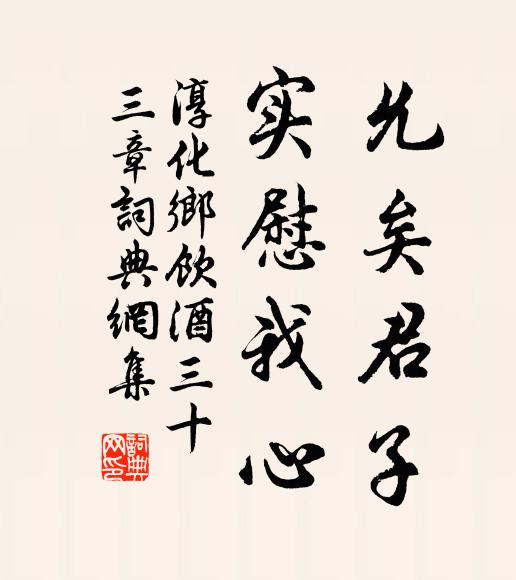 允矣君子
实慰我心
淳化鄉飲酒三十
三章詞典網集
詞典网印